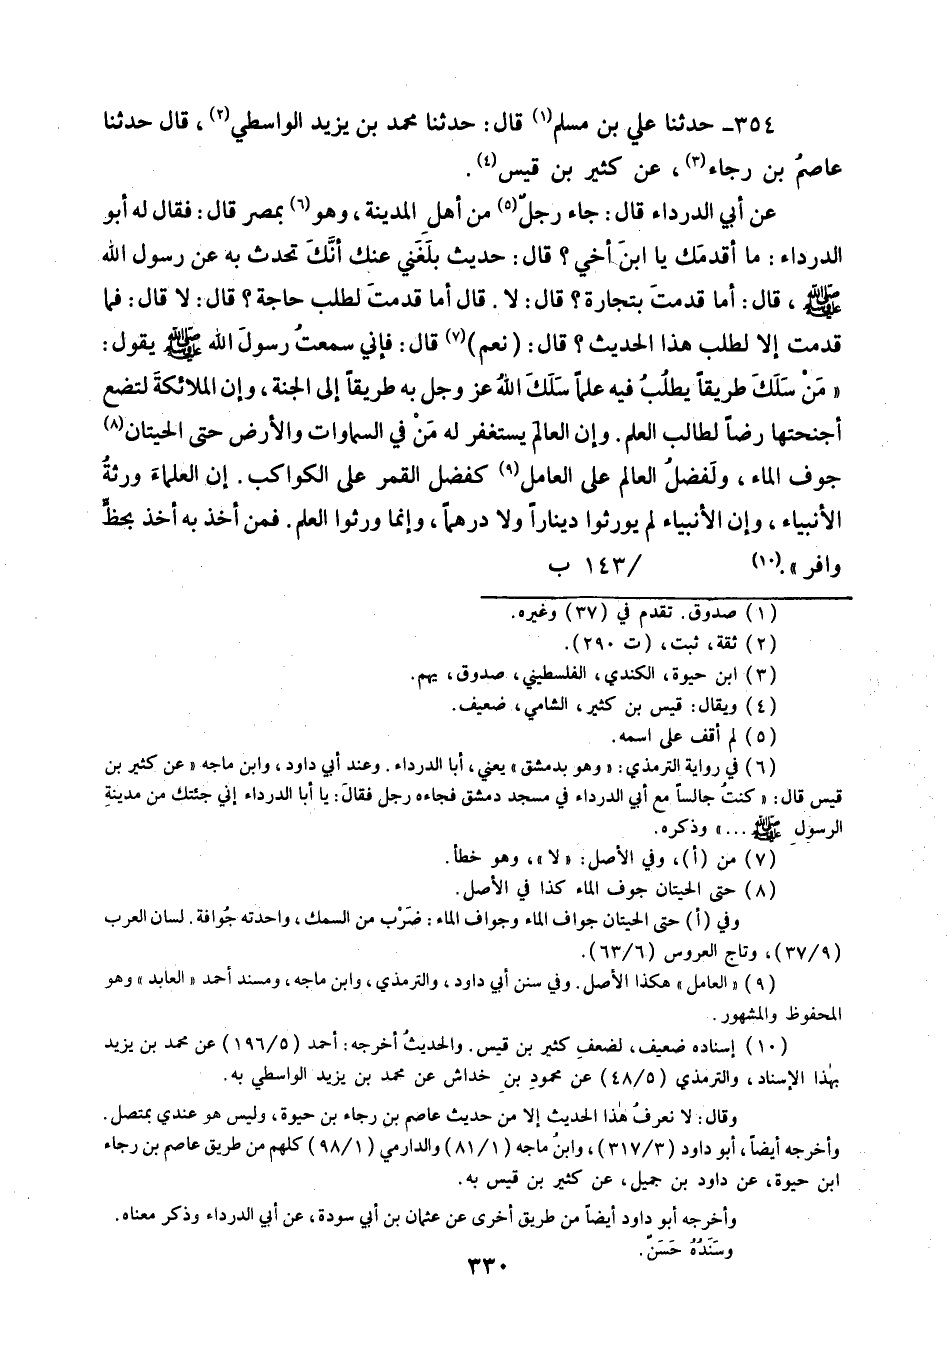 ٣٥٤ـ حدثنا علي بن مسلم(١) قال: حدثنا محمد بن يزيد الواسطي(٢)، قال حدثنا
عاصمُ بن رجاء(٣)، عن كثير بن قيس(٤).
عن أبي الدرداء قال: جاء رجلٌ(٥) من أهلِ المدينة، وهو(٦) بمصر قال: فقال له أبو
الدرداء: ما أقدمَك يا ابنَ أخي؟ قال: حديث بلَغَني عنك أنَّكَ تحدث به عن رسول الله
ﷺ، قال: أما قدمتَ بتجارة؟ قال: لا. قال أما قدمتَ لطلب حاجة؟ قال: لا قال: فما
قدمت إلا لطلب هذا الحديث؟ قال: (نعم)(٧) قال: فإني سمعتُ رسولَ الله ﷺ يقول:
«مَنْ سَلَكَ طريقاً يطلُبُ فيه علماً سَلَكَ اللهُ عز وجل به طريقاً إلى الجنة، وإن الملائكةَ لتضع
أجنحتها رضاً لطالب العلم. وإن العالمَ يستغفر له مَنْ في السماوات والأرض حتى الحيتان(٨)
جوف الماء، ولَفضلُ العالم على العامل(٩) كفضل القمر على الكواكب. إن العلماءَ ورثةُ
الأنبياء، وإن الأنبياء لم يورثوا ديناراً ولا درهماً، وإنما ورثوا العلم. فمن أخذ به أخذ بحظٍّ
وافر».(١٠) /١٤٣ ب
(١) صدوق. تقدم في (٣٧) وغيره.
(٢) ثقة، ثبت، (ت ٢٩٠).
(٣) ابن حيوة، الكندي، الفلسطيني، صدوق، يهم.
(٤) ويقال: قيس بن كثير، الشامي، ضعيف.
(٥) لم أقف على اسمه.
(٦) في رواية الترمذي: «وهو بدمشق» يعني، أبا الدرداء. وعند أبي داود، وابن ماجه «عن كثير بن
قيس قال: «كنتُ جالساً مع أبي الدرداء في مسجد دمشق فجاءه رجل فقالَ: يا أبا الدرداء إني جئتك من مدينةِ
الرسولِ ﷺ...» وذكره.
(٧) من (أ)، وفي الأصل: «لا»، وهو خطأ.
(٨) حتى الحيتان جوف الماء كذا في الأصل.
وفي (أ) حتى الحيتان جواف الماء وجواف الماء: ضَرْب من السمك، واحدته جُوافة. لسان العرب
(٣٧/٩)، وتاج العروس (٦٣/٦).
(٩) «العامل» هكذا الأصل. وفي سنن أبي داود، والترمذي، وابن ماجه، ومسند أحمد «العابد» وهو
المحفوظ والمشهور.
(١٠) إسناده ضعيف، لضعفِ كثير بن قيس. والحديثُ أخرجه: أحمد (١٩٦/٥) عن محمد بن يزيد
بهٰذا الإسناد، والترمذي (٤٨/٥) عن محمودِ بنِ خداش عن محمد بن يزيد الواسطي به.
وقال: لا نعرفُ هٰذا الحديث إلا من حديث عاصم بن رجاء بن حيوة، وليس هو عندي بمتصل.
وأخرجه أيضاً، أبو داود (٣١٧/٣)، وابنُ ماجه (٨١/١) والدارمي (٩٨/١) كلهم من طريق عاصم بن رجاء
ابن حيوة، عن داود بن جميل، عن كثير بن قيس به.
وأخرجه أبو داود أيضاً من طريق أخرى عن عثمان بن أبي سودة، عن أبي الدرداء وذكر معناه.
وسَنَدُهُ حَسَنٌ.
٣٣٠